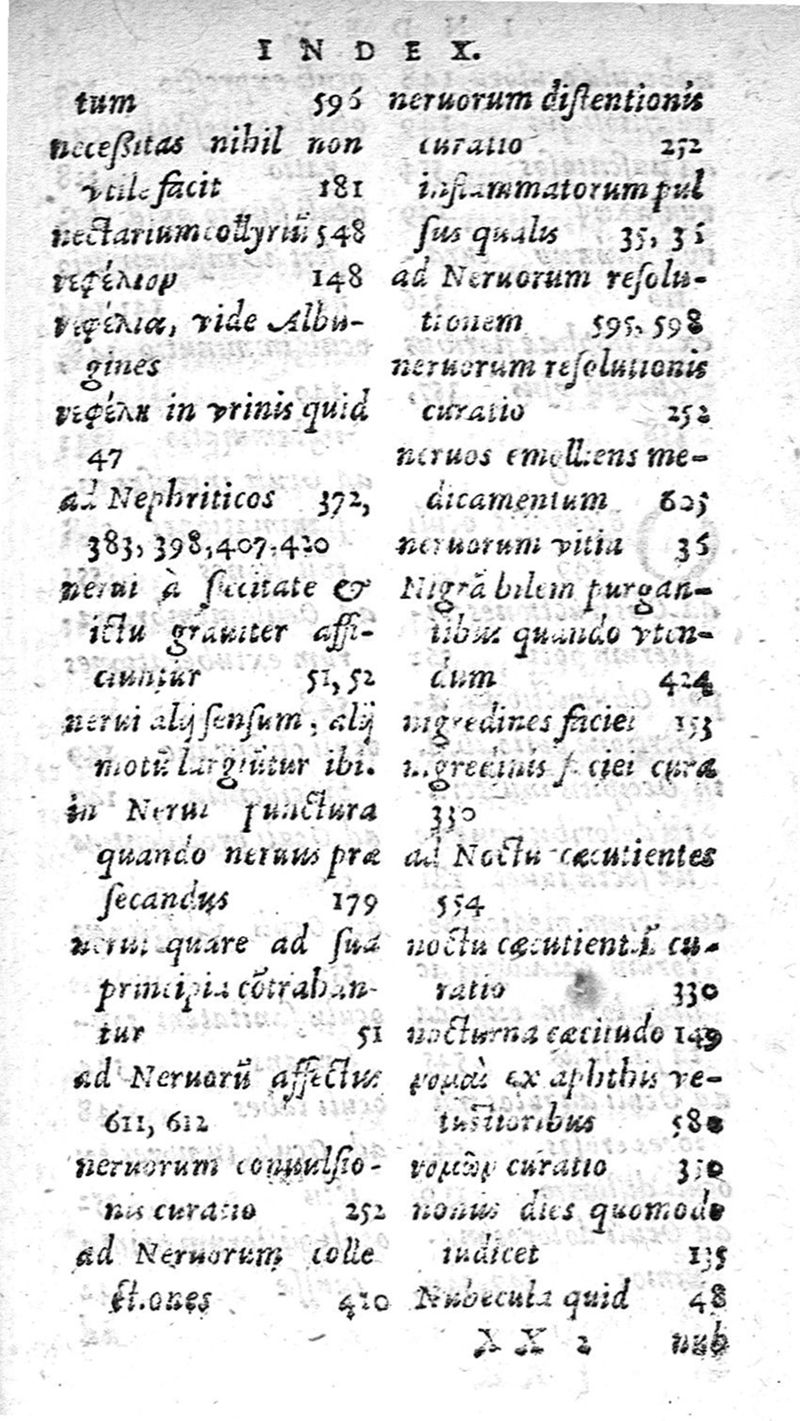 INDEX.
tum 596
neceßitas nihil non
vtile facit 181
nectarium collyriũ 548
νεφέλιον 148
νεφέλια, vide Albu-
gines
νεφέλη in vrinis quid
47
ad Nephriticos 372,
383, 398, 407, 420
nerui à siccitate &
ictu grauiter affi-
ciuntur 51, 52
nerui alij sensum, alij
motũ largiũtur ibi.
in Nerui punctura
quando neruus præ
secandus 179
nerui quare ad sua
principia cõtrahan-
tur 51
ad Neruorũ affectus
611, 612
neruorum conuulsio-
nis curatio 252
ad Neruorum colle
ctiones 410
neruorum distentionis
curatio 252
inflammatorum pul
sus qualis 35, 36
ad Neruorum resolu-
tionem 595, 598
neruorum resolutionis
curatio 252
neruos emolliens me-
dicamentum 605
neruorum vitia 36
Nigrã bilem purgan-
tibus quando vten-
dum 424
nigredines faciei 153
nigredinis faciei cura
330
ad Noctu cæcutientes
554
noctu cæcutientiũ cu-
ratio 330
nocturna cæcitudo 149
νομαὶ ex aphthis ve-
tustioribus 580
νομῶν curatio 350
nonus dies quomodo
iudicet 135
Nubecula quid 48
XX 2 nub